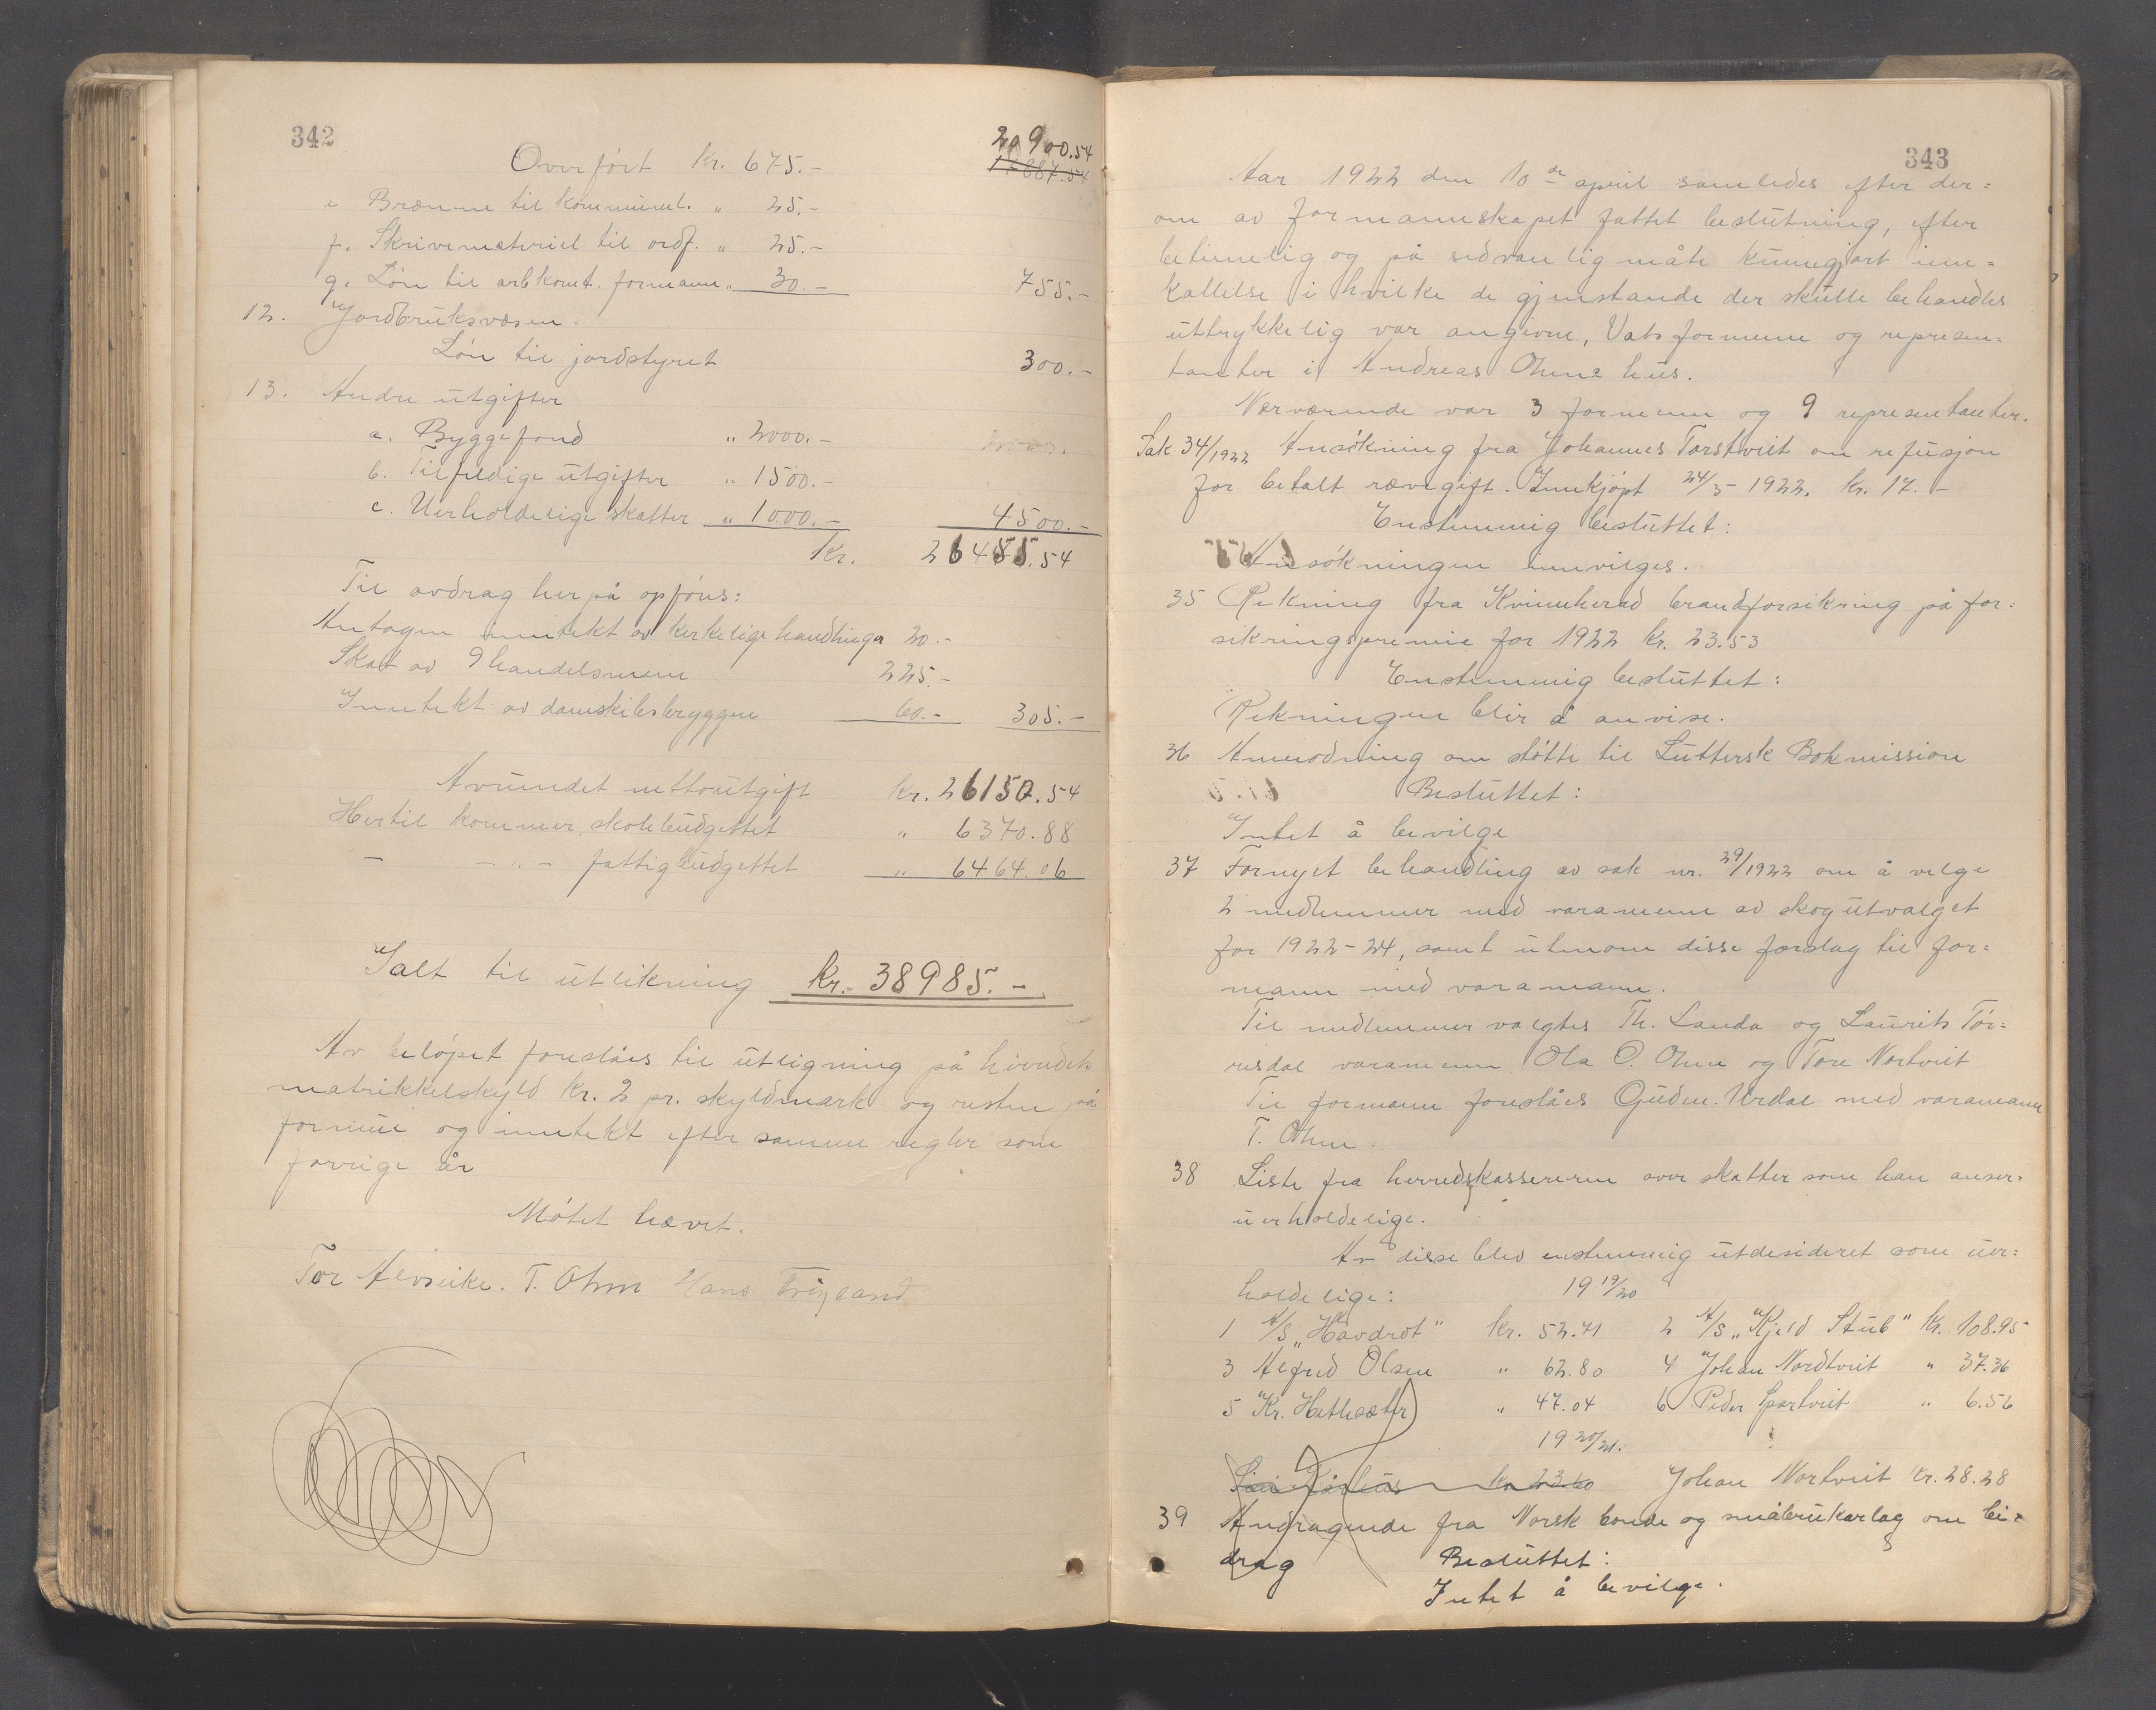 342
Overført Kr. 675.- 20900.54
e Brænne til kommunel. " 25.-
f. Skrivemateriel til ordf. " 25.-
g. Løn til arbkomt. formann " 30.- 755.-
12. Jordbruksvæsen.
Løn til jordstyret 300.-
13. Andre utgifter
a. Byggefond " 2000.-
b. Tilfeldige utgifter " 1500.-
c. Uerholdelige skatter " 1000.- 4500.-
Kr. 26455.54
Til avdrag herpå opføres:
Antagen inntekt av kirkelige handlinger 20.-
Skat av 9 handelsmenn 225.-
Inntekt av damskibsbryggen 60.- 305.-
Avrundet nettoutgift Kr. 26150.54
Hertil kommer skolebudgettet " 6370.88
- - " - fattigbudgettet " 6464.06
Ialt til utlikning kr. 38985.-
Av beløpet foreslåes til utligning på hérredets
matrikkelskyld kr. 2 pr. skyldmark og resten på
formue og inntekt efter samme regler som
forrige år
Møtet hævet.
Tor Alvseike. T. Ohm Hans
343
Aar 1922 den 10de april samledes efter der=
om av formannskapet fattet beslutning, efter
betimelig og på sedvanlig måte kunngjort inn=
kallelse i hvilke de gjenstande der skulle behandles
uttrykkelig var angivne, Vats formenn og represen=
tanter i Andreas Ohms hus.
Nærværende var 3 formenn og 9 representanter.
Sak 34/1922 Ansøkning fra Johannes Torstveit om refusjon
for betalt rævegift. Innkjøpt 24/3 - 1922. kr. 17.-
Enstemmig besluttet:
Ansøkningen innvilges.
35 Rekning fra Kvinnherad brandforsikring på for=
sikringspremie for 1922 kr. 23.53
Enstemmig besluttet:
Rekningen blir å anvise.
36 Anmodning om støtte til Luttersk Bokmission
Besluttet:
Intet å bevilge
37 Fornyet behandling av sak nr. 29/1922 om å velge
2 medlemmer med varamenn av skogutvalget
for 1922-24, samt utenom disse forslag til for=
mann med varamann.
Til medlemmer valgtes Th. Landa og Laurits Tør=
resdal varamenn Ola O. Ohm og Tore Nortveit
Til formann foreslåes Gudm. Urdal med varamann
T. Ohm.
38 Liste fra herredskassereren over skatter som han anser=
uerholdelige.
Av disse blev enstemmig utdesideret som uer=
holdelige: 19 19/20
1 A/S "Havdrot" kr. 52.71 2 A/S "Kjeld Stub" kr. 108.95
3 Alfred Olsen " 62.80 4 Johan Nordtveit " 37.36
5 Kr. Hetlesæter " 47.04 6 Peder Spartveit " 6.56
19 20/21.
kr 23.60 Johan Nortveit kr. 28.28
39 Andragende fra Norsk bonde og småbrukarlag om bi=
drag Besluttet:
Intet å bevilge.